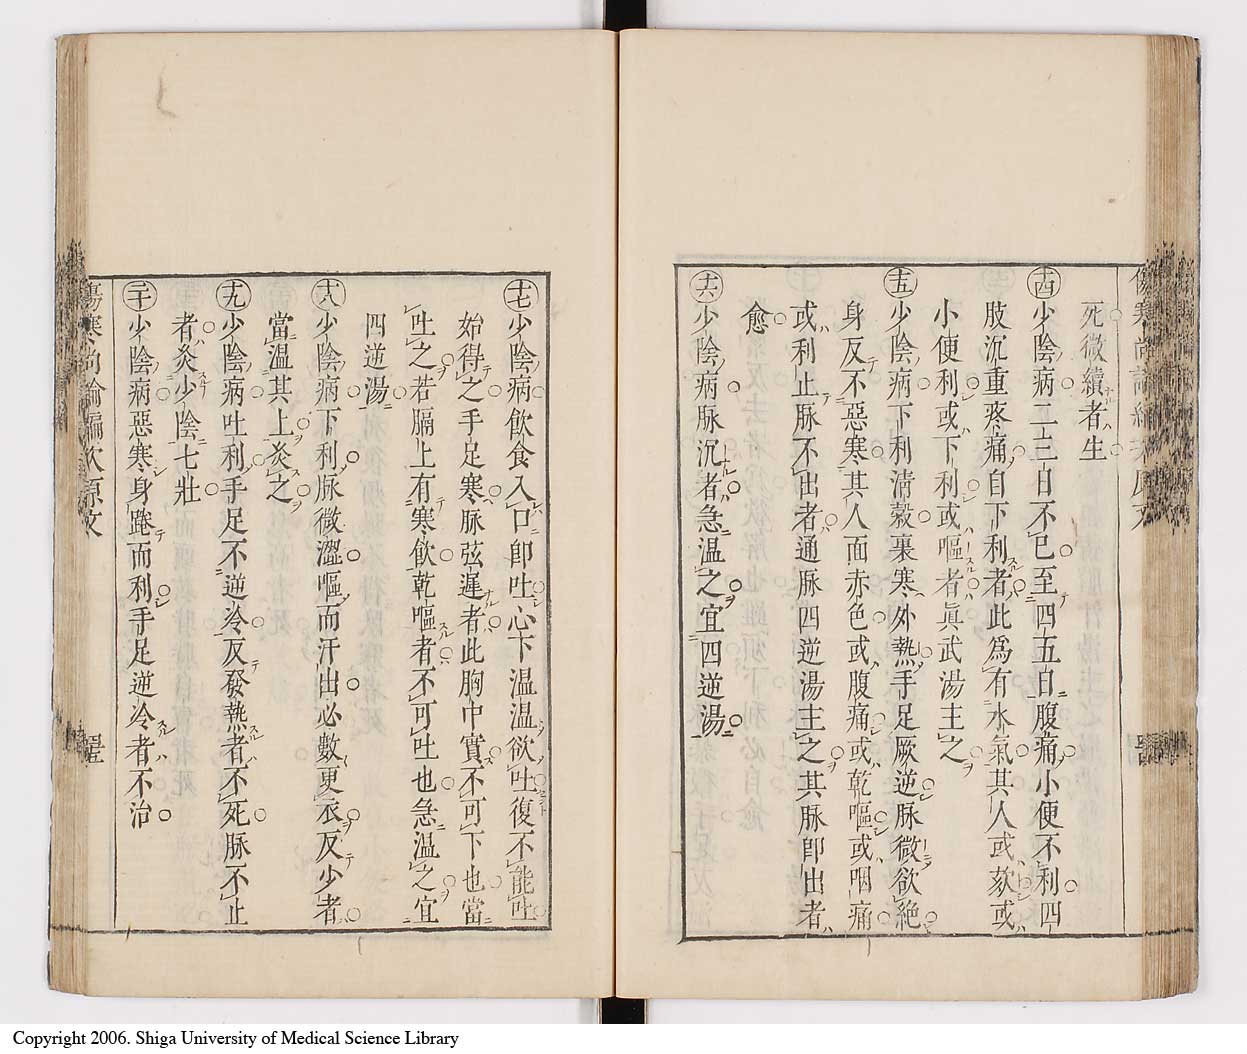 死微續者生
十四少陰病二三日不已至四五日腹痛小便不利四
肢沉重疼痛自下利者此爲有水氣其人或欬或
小便利或下利或嘔者眞武湯主之
十五少陰病下利清穀裏寒外熱手足厥逆脉微欲絶
身反不惡寒其人面赤色或腹痛或乾嘔或咽痛
或利止脉不出者通脉四逆湯主之其脉卽出者
愈
十六少陰病脉沉者急温之宜四逆湯
十七少陰病飮食入口卽吐心下温温欲吐復不能吐
始得之手足寒脉弦遲者此胸中實不可下也當
吐之若膈上有寒飮乾嘔者不可吐也急温之宜
四逆湯
十八少陰病下利脉微澀嘔而汗出必數更衣反少者
當温其上灸之
十九少陰病吐利手足不逆冷反發熱者不死脉不止
者灸少陰七壯
二十少陰病惡寒身踡而利手足逆冷者不治
傷寒尚論編次原文
Copyright 2006. Shiga University of Medical Science Library